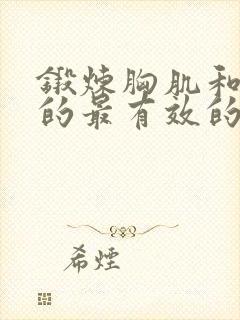 鍛炼胸肌和
的最有效的
希煙